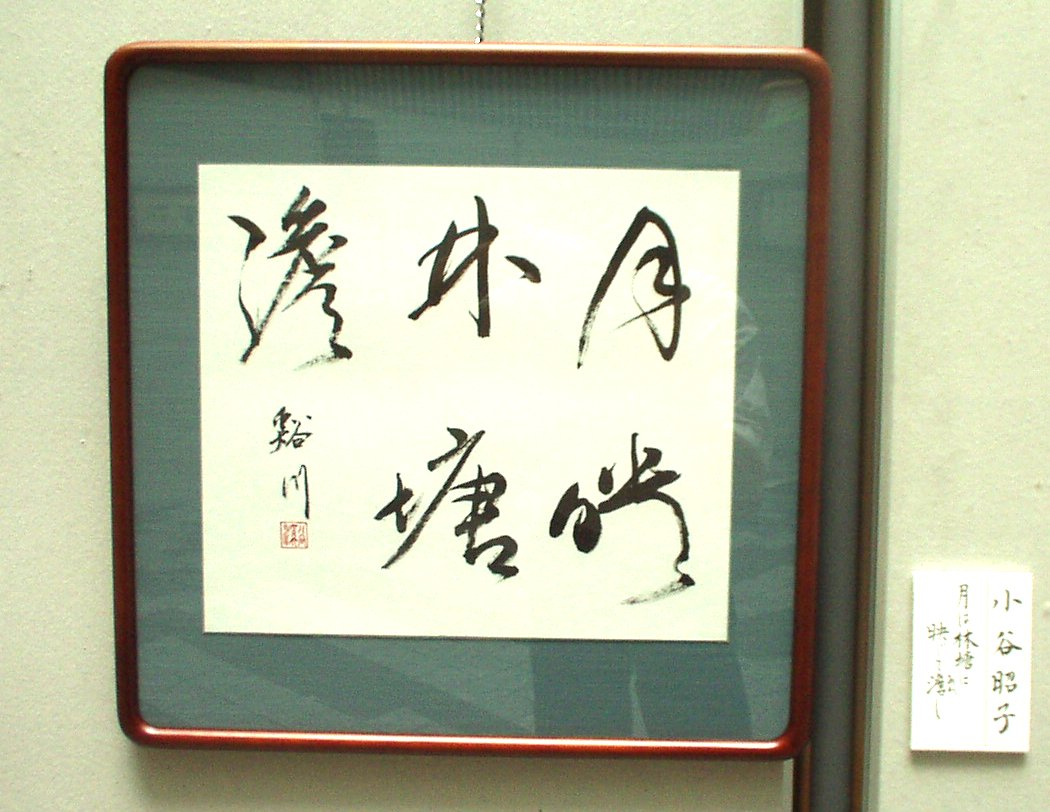 月映
林塘
澹
谿川
小谷昭子
月は林塘に
映じて澹し